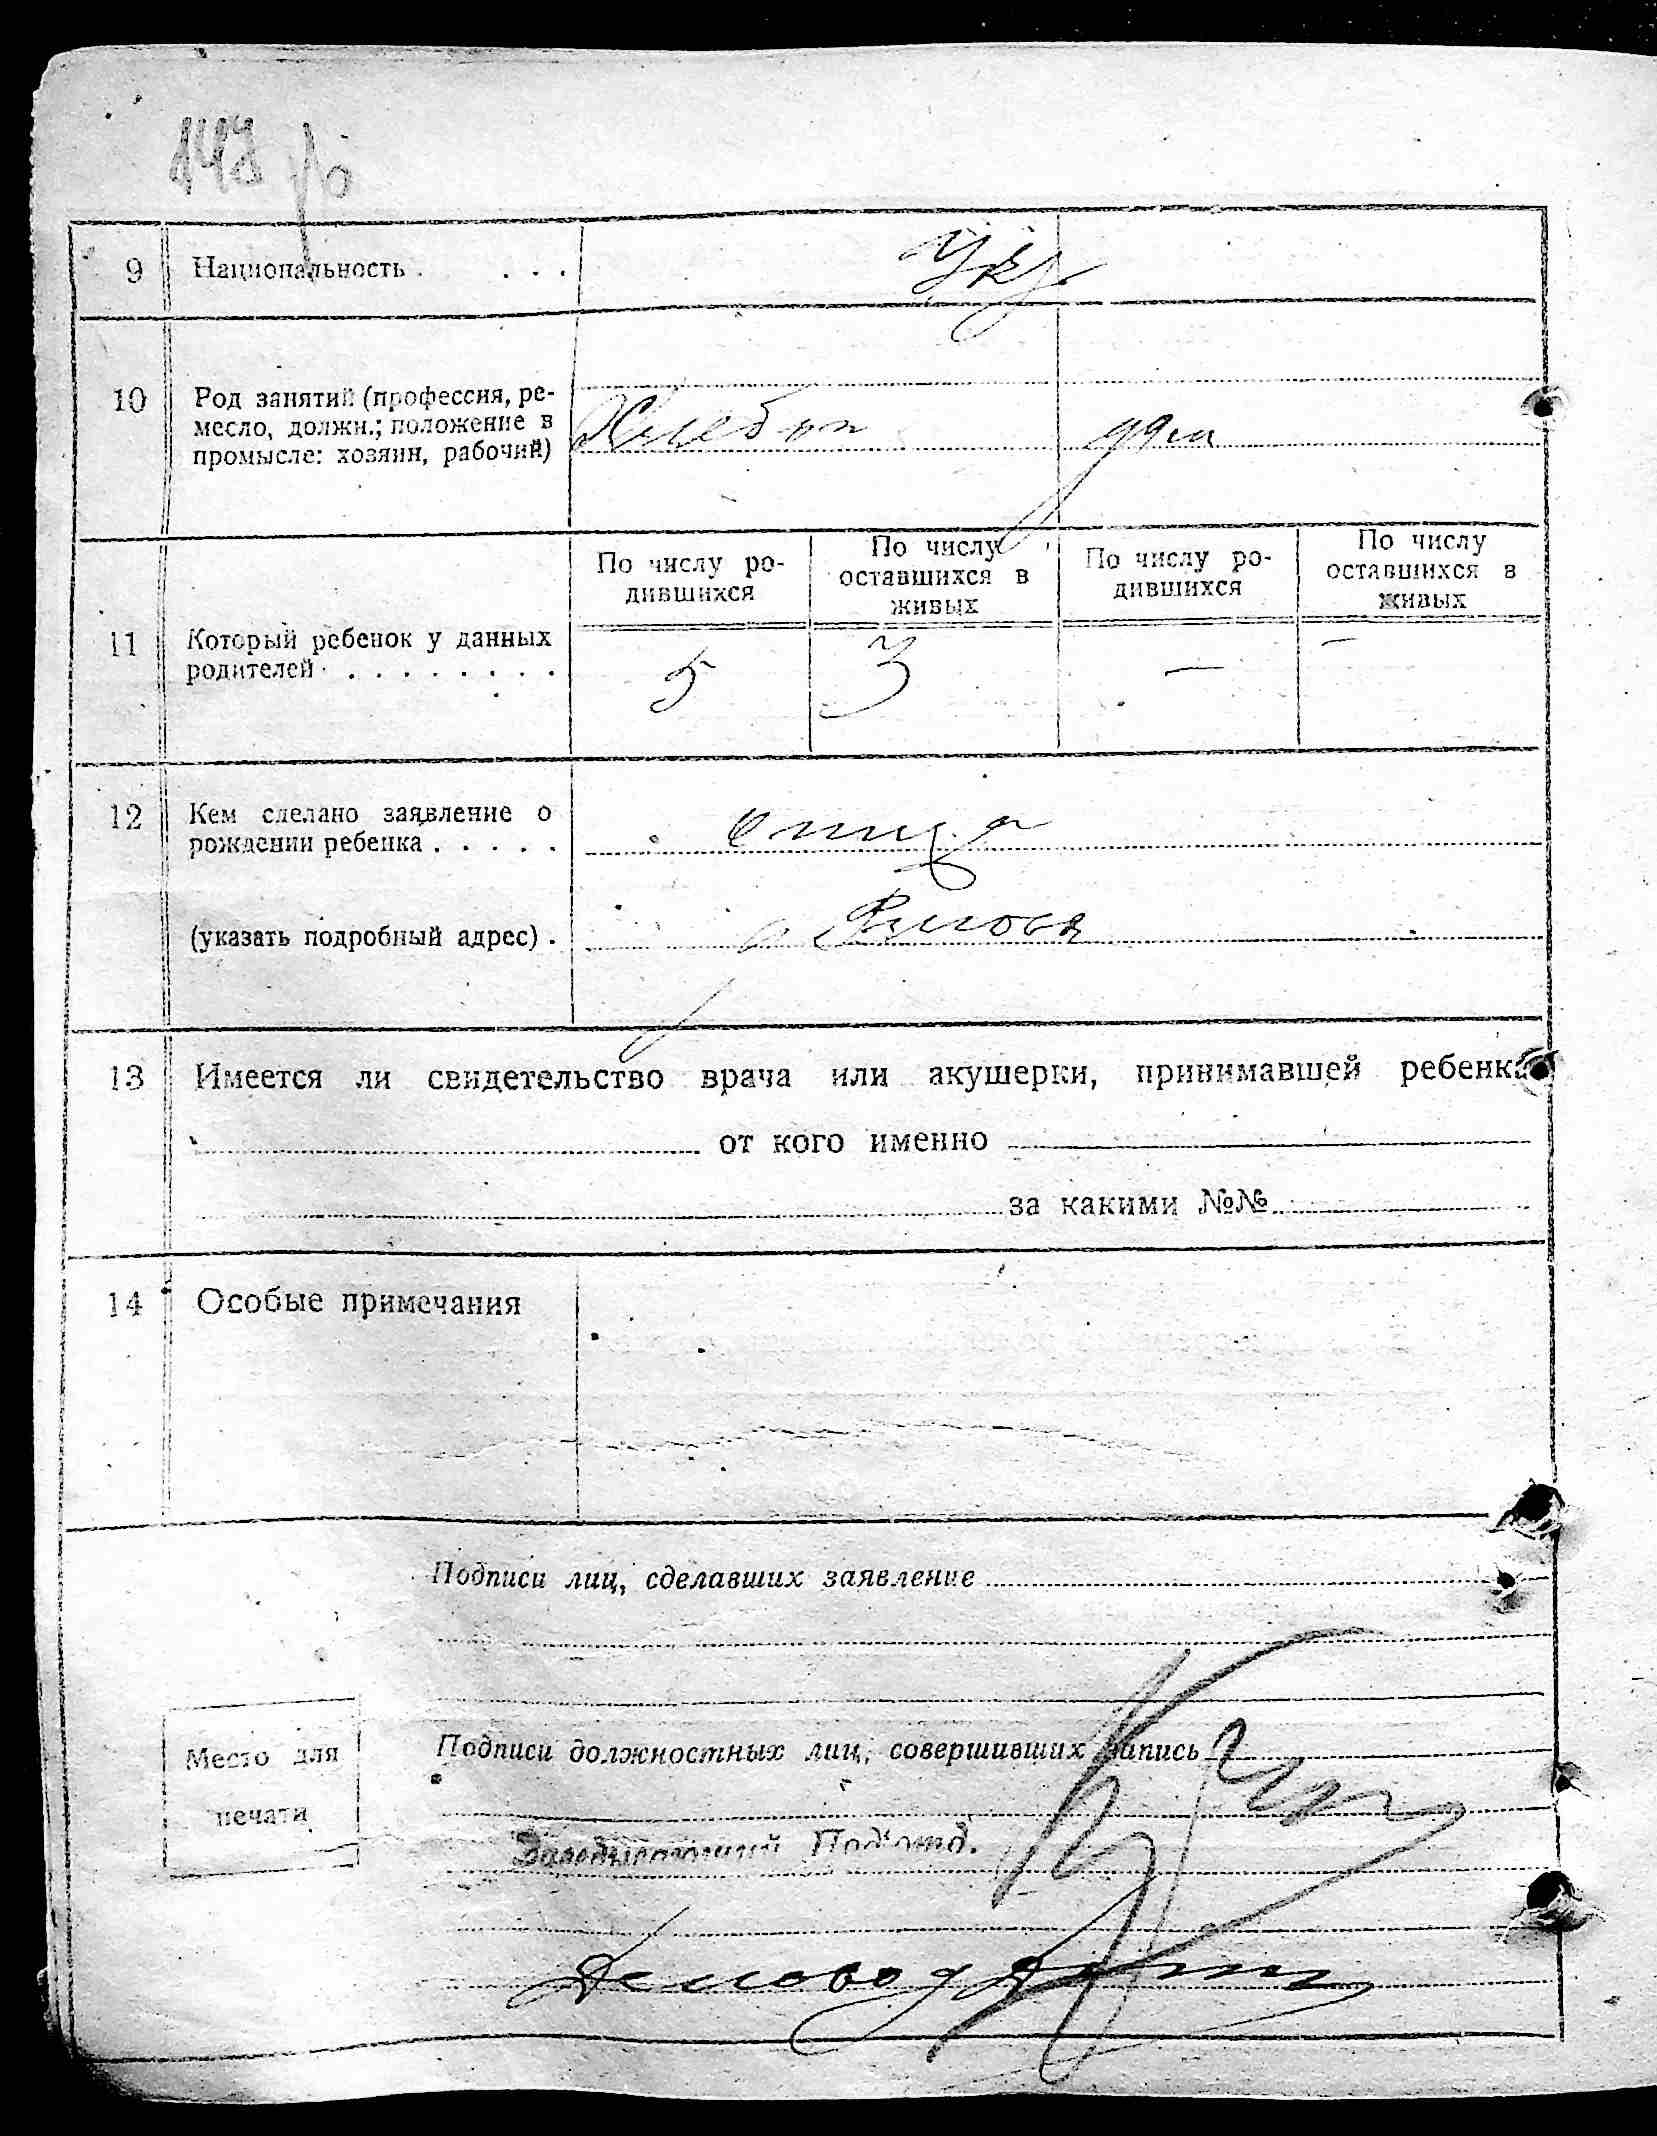 9 Национальность . . . . Укр
10 Род занятий (профессия, ре-
месло, должн.; положение в
промысле: хозяин, рабочий)
Хлебоп
По числу ро-
дившихся
По числу
оставшихся в
живых
По числу ро-
дившихся
По числу
оставшихся в
живых
11 Который ребенок у данных
родителей . . . . . . . .
5 3 — —
12 Кем сделано заявление о
рождении ребенка . . . . .
отца
(указать подробный адрес) .
13 Имеется ли свидетельство врача или акушерки, принимавшей ребенка
от кого именно
за какими №№
14 Особые примечания
Подписи лиц, сделавших заявление
Подписи должностных лиц, совершивших запись
Место для
печати
Заведывающий Под'отд.
Деловод